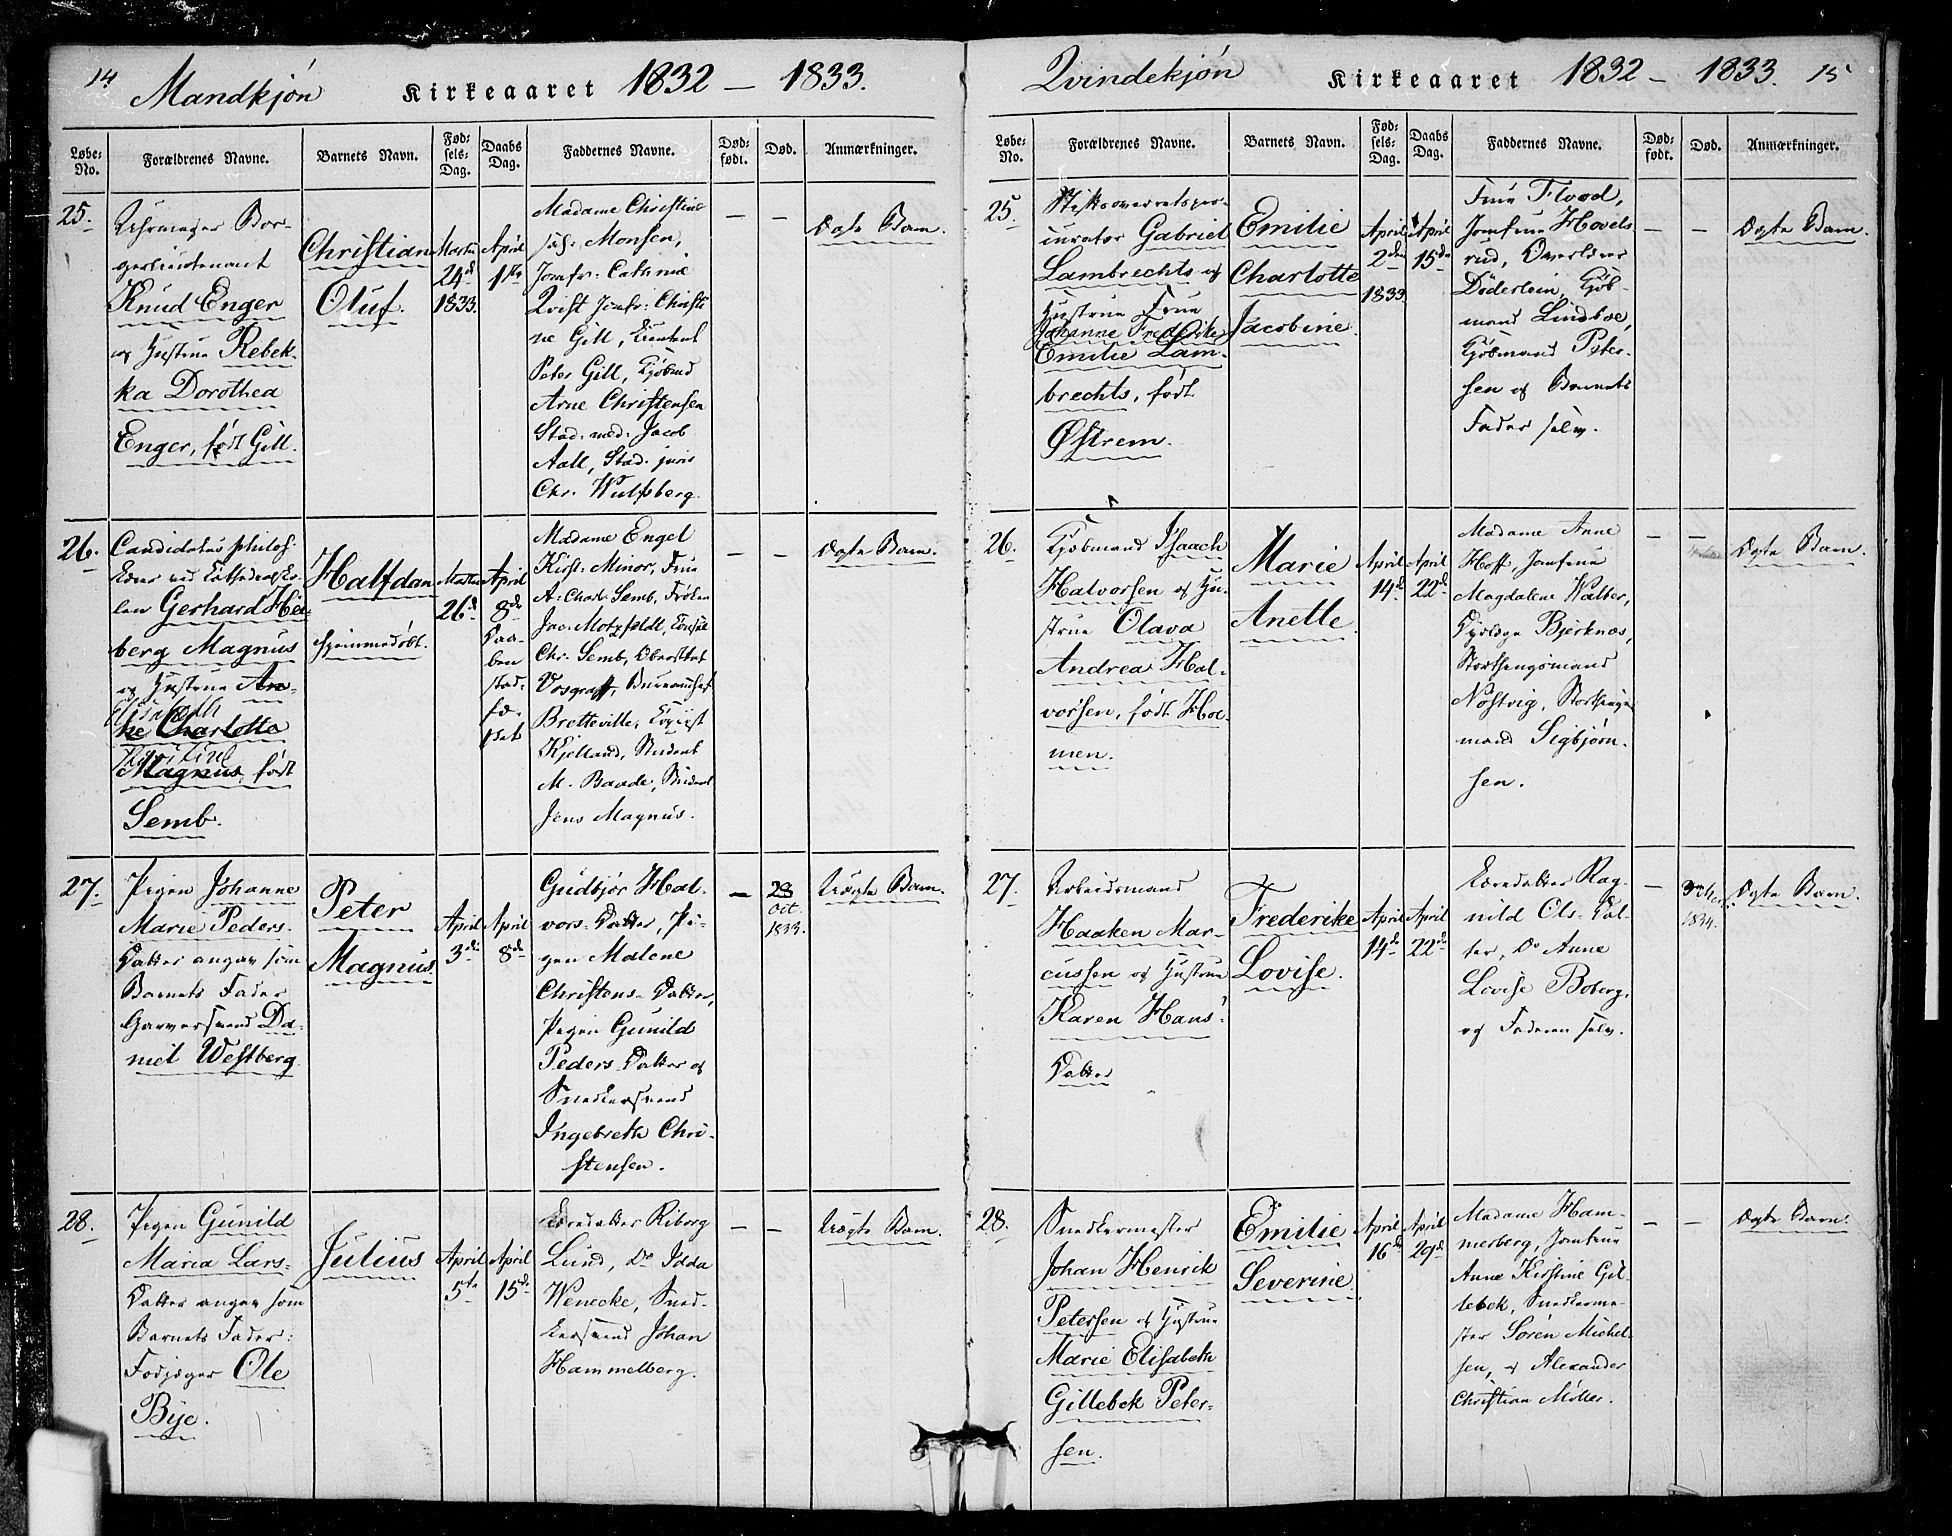 14
Mandkjøn Kirkeaaret 1832 – 1833.
Løbe-No. Forældrenes Navne. Barnets Navn. Fødsels-Dag. Daabs Dag. Faddernes Navne. Dødfødt. Død. Anmærkninger.
25.
Uhrmager Bor-
gerlieutenant
Knud Enger
og Hustrue Rebek-
ka Dorothea
Enger, født Gill.
Christian
Oluf.
Marts
24d
1833.
April
1ste
Madame Christine
Monsen,
Jomfr: Cathrine
Qvist Jomfr: Christi
ne Gill, Lieutent
Peter Gill, Kjøbmd
Arne Christensen
Stud: med: Jacob
Aall, Stud. juris
Chr. Wulfsberg.
– –
Ægte Barn.
26.
Candidatus philos.
Lærer ved Cathedralsko-
len Gerhard Hei-
berg Magnus
og Hustrue An-
Elisabeth
ne Charlotte
Magnus, født
Semb.
Halfdan
hjemmedøbt.
Marts
26d
April
8de
Daa-
ben
stad-
fæ-
stet
Madame Engel
Kirst: Minor, Frue
A: Charl: Semb, Frøken
Jac: Motzfeldt, Consul
Chr. Semb, Oberstlnt
Vosgraff, Bureauchef
Bretteville, Copiist
Kjelland, Student
M. Baade, Student
Jens Magnus.
– –
Ægte Barn.
27.
Pigen Johanne
Marie Peders-
Datter angav som
Barnets Fader
Garversvend Da-
niel Westberg.
Peter
Magnus.
April
3de
April
8de
Gudbjør Hal-
vors-Datter, Pi-
gen Malene
Christens-Datter,
Pigen Gunild
Peders-Datter og
Snedkersvend
Ingebreth Chri-
stensen.
–
28
Oct.
1833.
Uægte Barn.
28.
Pigen Gunild
Maria Lars-
Datter angav som
Barnets Fader:
Fodjæger Ole
Bye.
Julius
April
5te
April
15de
Læredatter Riborg
Lund, Do Idda
Wenecke, Sned-
kersvend Johan
Hammelberg.
– –
Uægte Barn.
Qvindekjøn Kirkeaaret 1832 – 1833. 15
Løbe-No. Forældrenes Navne. Barnets Navn. Fødsels-Dag. Daabs Dag. Faddernes Navne. Dødfødt. Død. Anmærkninger.
25.
Stiftsoverretspro-
curator Gabriel
Lambrechts og
Hustrue Frue
Johanne Frederikke
Emilie Lam-
brechts, født
Østrem.
Emilie
Charlotte
Jacobine.
April
2den
1833.
April
15de
Frue Flood,
Jomfrue Hovels
rud, Overlærer
Døderlein, Kjøb-
mand Lindboe,
Kjøbmand Peter-
sen og Barnets
Fader selv.
– –
Ægte Barn.
26.
Kjøbmand Isaach
Halvorsen og Hu-
strue Olava
Andrea Hal-
vorsen, født Hol-
men.
Marie
Anette.
April
14de
April
22de
Madame Anne
Hoff, Jomfrue
Magdalene Walter,
Dyrlæge Bjerknæs,
Storthingsmand
Nøstvig, Storthings-
mand Sigbjørn-
sen.
– –
Ægte Barn.
27.
Arbeidsmand
Haaken Mar-
cussen og Hustrue
Karen Hans-
Datter
Frederike
Lovise.
April
14de
April
22de
Læredatter Rag-
nild Ols-Dat-
ter, Do Anne
Lovise Boberg,
og Faderen selv.
–
1834.
Ægte Barn.
28.
Snedkermester
Johan Henrik
Petersen og Hustrue
Marie Elisabeth
Gillebek Peter-
sen.
Emilie
Severine.
April
16de
April
29de
Madame Ham-
merberg, Jomfrue
Anne Kirstine Gil-
lebek, Snedkerme-
ster Søren Michel-
sen, og Alexander
Christian Møller.
– –
Ægte Barn.